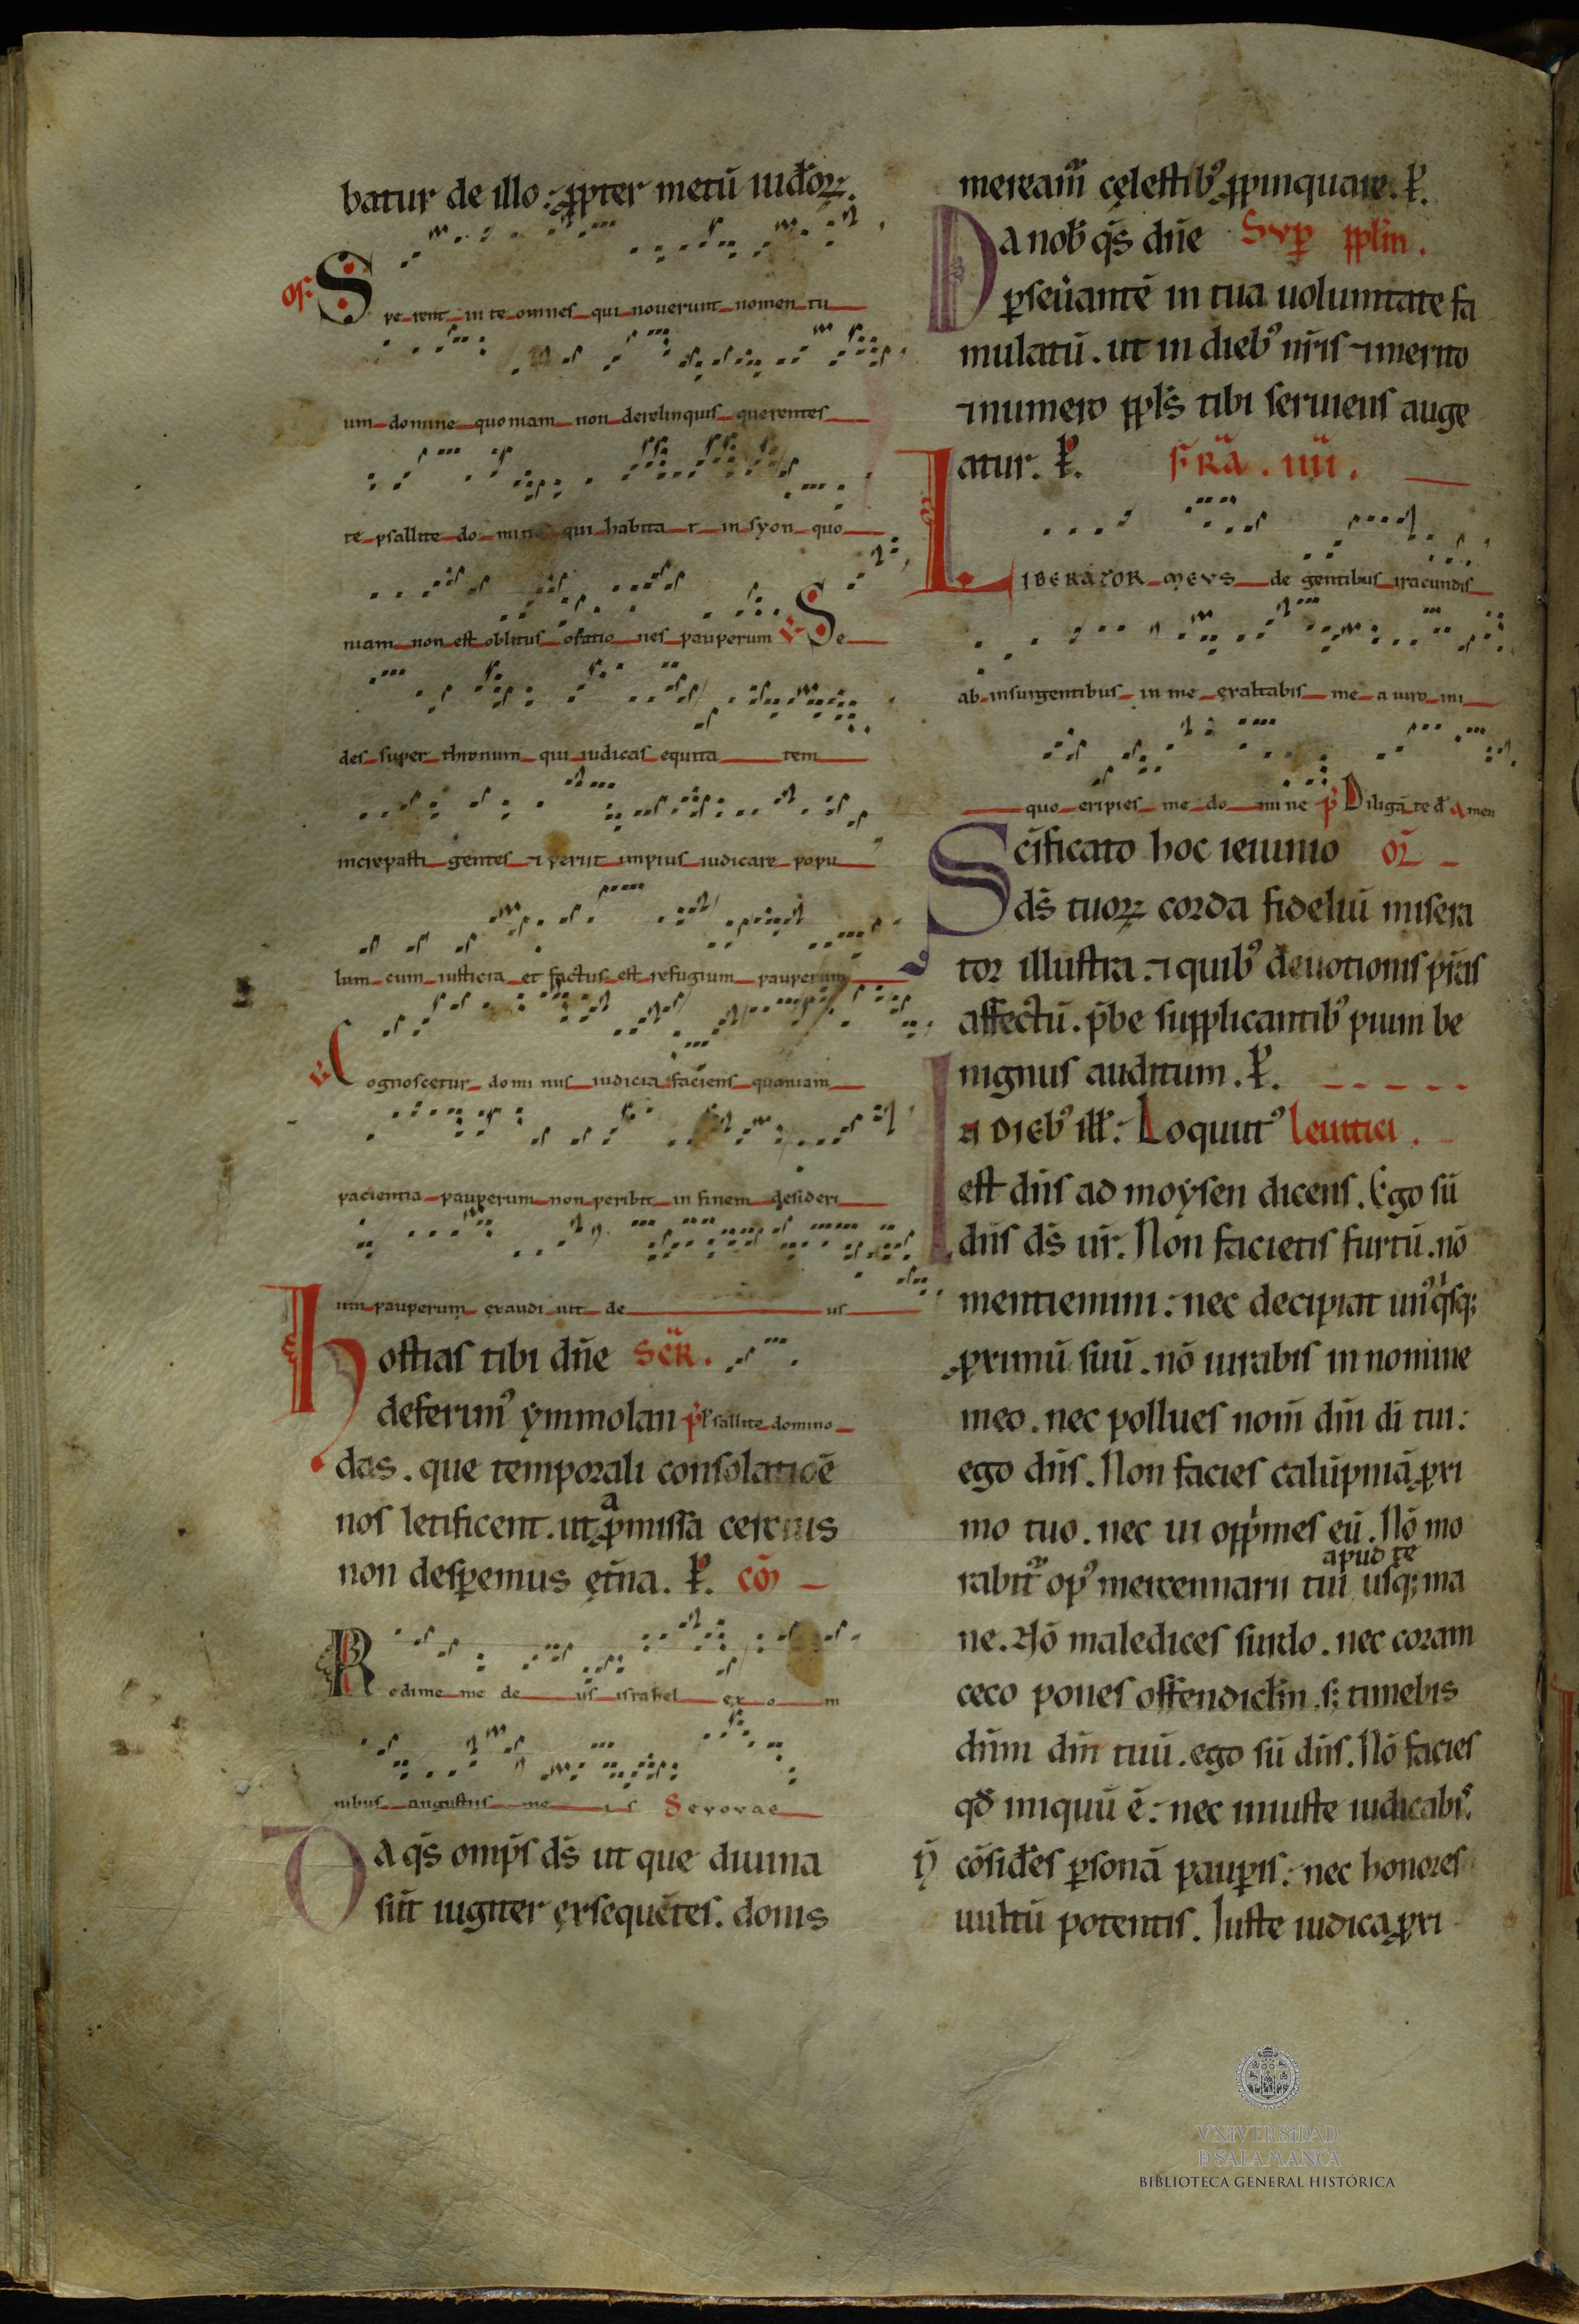 batur de illo. ꝓpter metū iudeoꝝ.
of. Spe_rent_in te_omnes_qui_noverunt_nomen_tu
um_domine_quoniam_non_derelinquis_querentes
te_psallite_do_mino_qui_habita_t_in syon_quo
niam_non_est_oblitus_oratio_nes_pauperum ℣ Se
des_super_thronum_qui_iudicas_equita_tem
increpasti_gentes_⁊ periit_impius_iudicare_popu
lum_cum_iusticia_et factus_est_refugium_pauperum
℣ Cognoscetur_domi nus_iudicia faciens_quoniam
pacientia_pauperum_non_peribit_in finem_desideri
um_pauperum_exaudi uit_de_us
hostias tibi dn̄e Scr̄.
deferim᷒ ymmolan p̄ Psallite_domino
das. que temporali consolatiōe
nos letificent. ut ꝓmissa a certius
non desꝑemus et̄na. ꝑ. cō
Redime_me de_us_israhel_ex_o_m
nibus_angustiis_me_is Sevovae
Da qs̄ omp̄s ds̄ ut que diuina
sūt iugiter exsequētes. donis
meream̄ cęlestib᷒ ꝓpinquare. ꝑ.
Da nob̄ qs̄ dn̄e Svꝑ pplm̄.
ꝑseūantē in tua uoluntate fa
mulatū. ut in dieb᷒ nr̄is ⁊ merito
⁊ numero ppls̄ tibi seruiens auge
atur. ꝑ. Fr̄a. iiii.
LIBERATOR_MEVS_de gentibus_iracundis
ab_insurgentibus_in me_exaltabis_me_a uiro_ini
quo_eripies_me_do_mi ne p̄ Diligā te d̄ Amen
Scīficato hoc ieiunio or̄
ds̄ tuoꝝ corda fideliū misera
tor illustra. ⁊ quib᷒ deuotionis p̄stas
affectū. p̄be supplicantib᷒ pium be
nignus auditum. ꝑ.
In Dieb᷒ ill̄: Loquut᷒ leuitici.
est dn̄s ad moysen dicens. Ego sū
dn̄s ds̄ ur̄. Non facietis furtū. nō
mentiemini: nec decipiat un᷒qⁱsq;
ꝓximū suū. nō iurabis in nomine
meo. nec pollues nom̄ dn̄i dī tui:
ego dn̄s. Non facies calūpniā ꝓxi
mo tuo. nec ui opp̄mes eū. Nō mo
apud te
rabit̄ op᷒ mercennarii tui usq; ma
ne. Nō maledices surdo. nec coram
ceco pones offendiclm̄. s; timebis
dn̄m dm̄ tuū. ego sū dn̄s. Nō facies
qd̄ iniquū ē: nec iniuste iudicabis.
ñ cōsideres ꝑsonā pauꝑis: nec honores
uultū potentis. Iuste iudica ꝓxi
VNIVERSIDAD
D SALAMANCA
BIBLIOTECA GENERAL HISTÓRICA